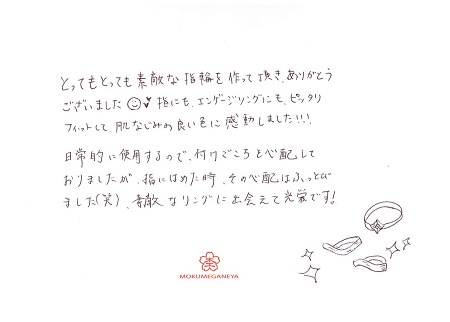 とってもとっても素敵な指輪を作って頂き、ありがとう
ございました☺♥指にも、エンゲージリングにも、ピッタリ
フィットして、肌なじみの良い色に感動しました!!!
日常的に使用するので、付けごこちを心配して
おりましたが、指にはめた時、その心配はふっとび
ました(笑)、素敵なリングに出会えて光栄です!
MOKUMEGANEYA